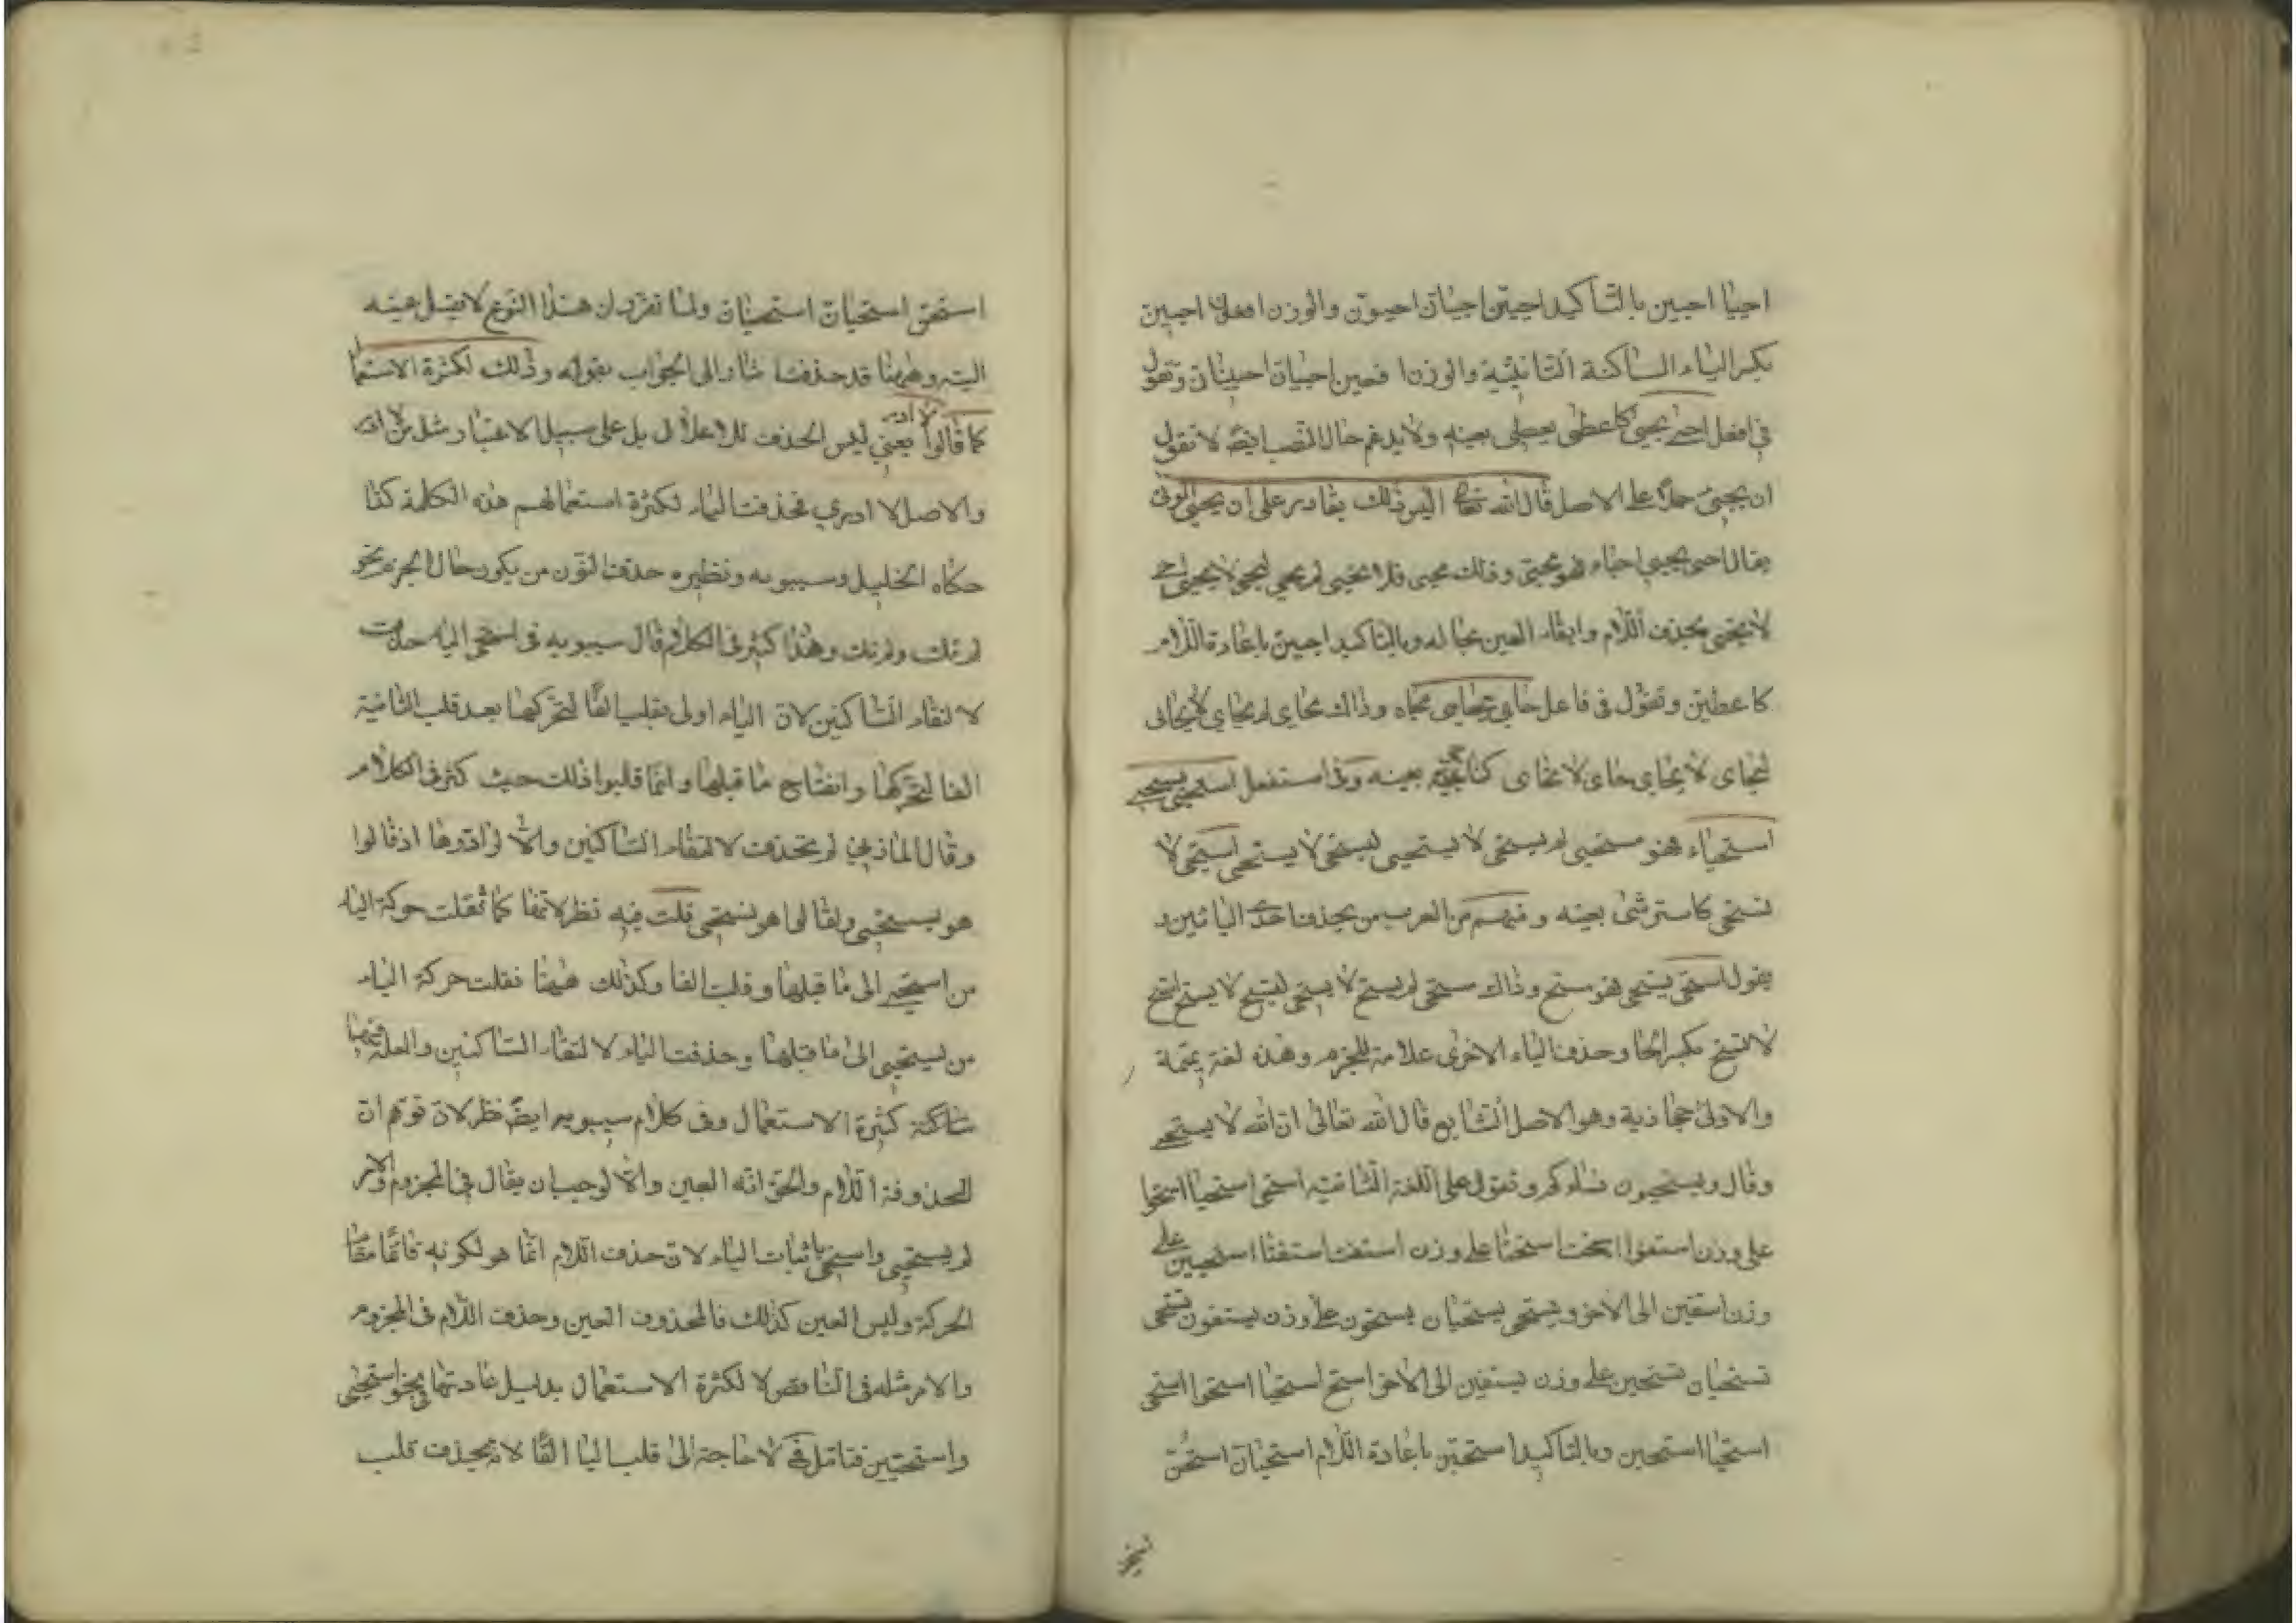 احييا احيين بالتاكيد احيين احيان احيون والوزن افعلن احيين
بكسر الياء الساكنة الثانية والوزن افعين احييان احيينان وتقول
في افعل احيى يحيى كاعطى يعطى بعينه ولا يدغم حال النصب ايضا لا تقول
ان يحيى حملا على الاصل قال الله تعالى اليس ذلك بقادر على ان يحيى الموتى
يقال احيى يحيى احياء فهو محيى وذلك محيى فلم يحيى لم يحيى ليحيى لا يحيى احى
لا يحيى بحذف اللام وابقاء العين بحاله وبالتاكيد احيين باعادة اللام
كاعطين وتقول في فاعل حايى يحايى محاياه وذاك محاى لم يحاى لا يحاى
ليحاى لا يحاى حاى لا تحاى كناجى بعينه وفي استفعل استحيى يستحيى
استحياء فهو مستحيى لم يستحى لا يستحيى ليستحى لا يستحى استحى لا
تستحى كاسترشى بعينه ومنهم من العرب من يحذف احدى اليائين و
يقول استحى يستحى فهو مستح وذاك مستحى لم يستح لا يستحى ليستح لا يستح استح
لا تستح بكسر الحا وحذف الياء الاخرى علامة للجزم وهذه لغة تميمة
والاولى حجازية وهو الاصل الشايع قال الله تعالى ان الله لا يستحيى
وقال ويستحيون نساءكم وتقول على اللغة الثانية استحى استحيا استحوا
على وزن استفوا استحت استحتا على وزن استفت استفتا استحيين على
وزن استفين الى الاخر ويستحى يستحيان يستحون على وزن يستفون تستحى
تستحيان تستحين على وزن يستفين الى الاخر استح استحيا استحوا استحى
استحيا استحين وبالتاكيد استحين باعادة اللام استحيان استحن
استحن استحيان استحينان ولما تقرر ان هذا النوع لا يعل عينه
البته وههنا قد حذفت اشار الى الجواب بقوله وذلك لكثرة الاستعما
كما قالوا لا ادر يعني ليس الحذف للاعلال بل على سبيل الاعتباط مثل لا ادر
والاصل لا ادرى فحذفت الياء لكثرة استعمالهم هذه الكلمة كذا
حكاه الخليل وسيبويه ونظيره حذف النون من يكون حال الجزم نحو
لم تك ولم نك وهذا كثير في الكلام قال سيبويه في استحى الياء حذفت
لالتقاء الساكنين لان الياء اولى تقلب الفا لتحركها بعد قلب الثانية
الفا لتحركها وانفتاح ما قبلها وانما قلبوا ذلك حيث كثر في الكلام
وقال المازني لم تحذف لالتقاء الساكنين والا لردوها اذ قالوا
هو يستحيى ولقالوا هو يستحى قلت فيه نظر لانها كما نقلت حركة الياء
من استحيى الى ما قبلها وقلب الفا وكذلك ههنا نقلت حركة الياء
من يستحيى الى ما قبلها وحذفت الياء لالتقاء الساكنين والعلة فيهما
شاكنة كثيرة الاستعمال وفي كلام سيبويه ايضا نظر لان قوم ان
المحذوفة اللام والحق انه العين والا لوجب ان يقال في المجزوم والامر
لم يستحيى واستحى باثبات الياء لان حذف اللام انما هو لكونه قائما مقام
الحركة وليس العين كذلك فالمحذوف العين وحذف اللام في المجزوم
والامر مثله في الناقص لا لكثرة الاستعمال بدليل اعادتها في نحو استحيى
واستحيين فتامل في لا حاجة الى قلب اليا الفا لانه يحذف قلب